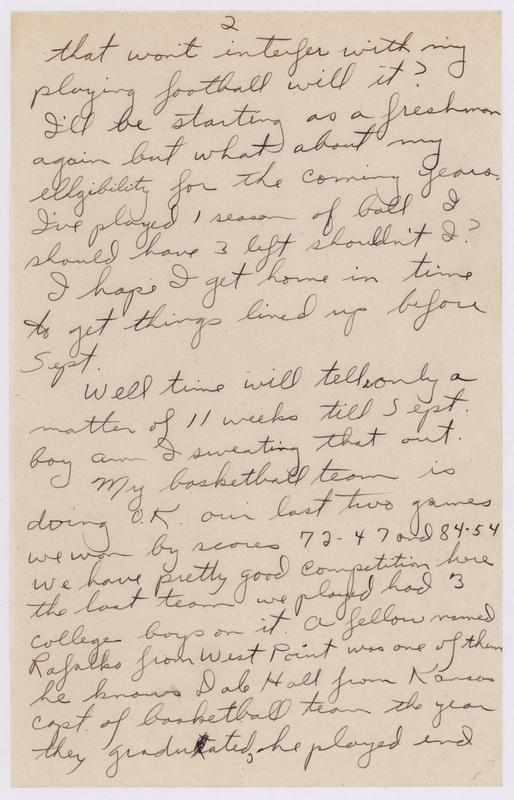 2
that won't interfer with my
playing football will it?
I'll be starting as a freshman
again but what about my
elligibility for the coming years.
I've played 1 season of ball I
should have 3 left shouldn't I?
I hope I get home in time
to get things lined up before
Sept.
Well time will tell, only a
matter of 11 weeks till Sept.
boy am I sweating that out.
My basketball team is
doing O.K. our last two games
we won by scores 72-47 and 84-54
we have pretty good competition here
the last team we played had 3
college boys on it. A fellow named
Rafalko from West Point was one of them
he knows Dale Hall from Kansas
capt of basketball team the year
they graduated, he played end